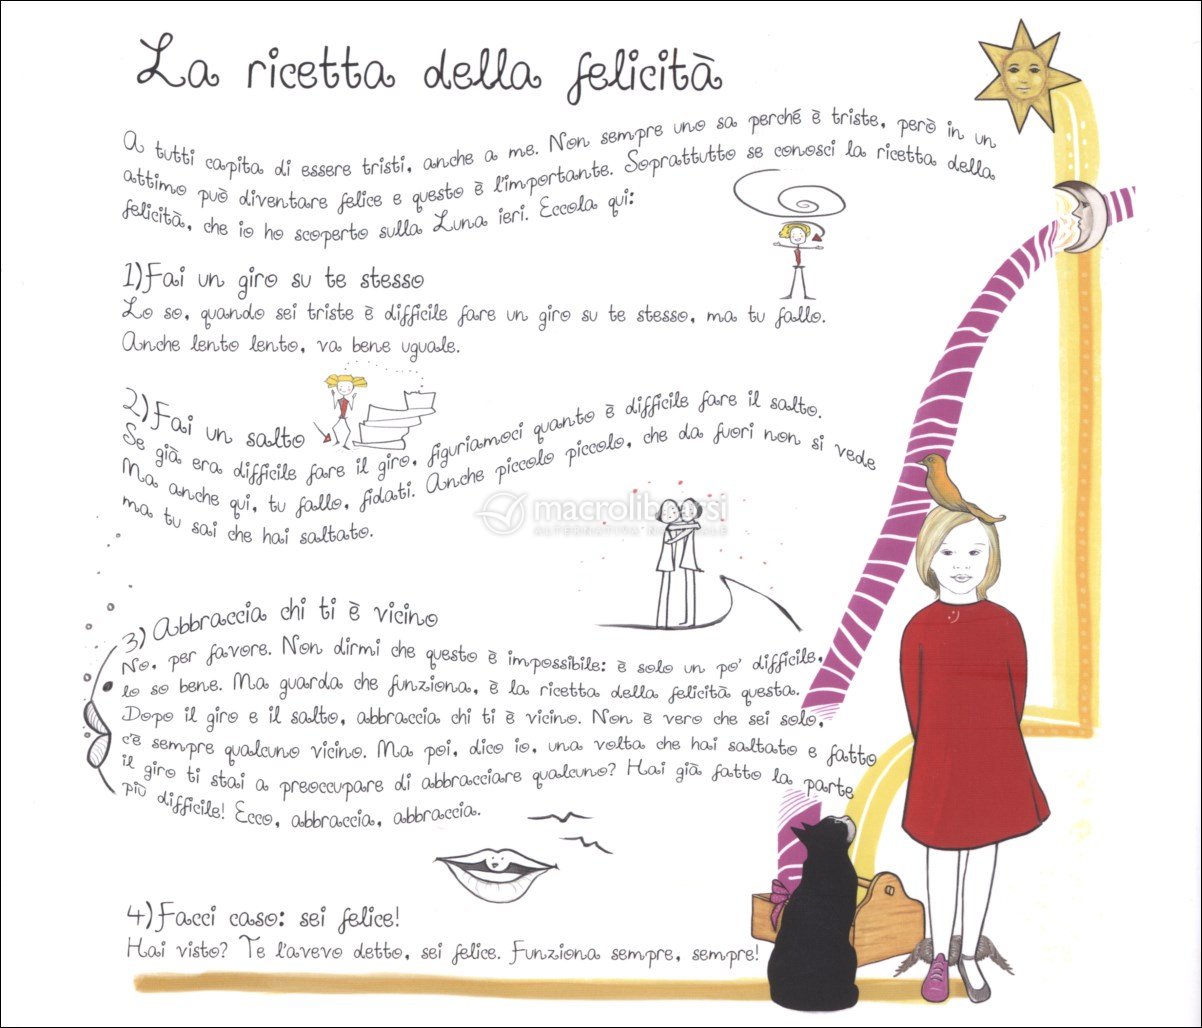 La ricetta della felicità
A tutti capita di essere tristi, anche a me. Non sempre uno sa perché è triste, però in un
attimo può diventare felice e questo è l'importante. Soprattutto se conosci la ricetta della
felicità, che io ho scoperto sulla Luna ieri. Eccola qui:
1) Fai un giro su te stesso
Lo so, quando sei triste è difficile fare un giro su te stesso, ma tu fallo.
Anche lento lento, va bene uguale.
2) Fai un salto
Se già era difficile fare il giro, figuriamoci quanto è difficile fare il salto.
Ma anche qui, tu fallo, fidati. Anche piccolo piccolo, che da fuori non si vede
ma tu sai che hai saltato.
macrolibrarsi
ALTERNATIVA NATURALE
3) Abbraccia chi ti è vicino
No, per favore. Non dirmi che questo è impossibile: è solo un po' difficile,
lo so bene. Ma guarda che funziona, è la ricetta della felicità questa.
Dopo il giro e il salto, abbraccia chi ti è vicino. Non è vero che sei solo,
c'è sempre qualcuno vicino. Ma poi, dico io, una volta che hai saltato e fatto
il giro ti stai a preoccupare di abbracciare qualcuno? Hai già fatto la parte
più difficile! Ecco, abbraccia, abbraccia.
4) Facci caso: sei felice!
Hai visto? Te l'avevo detto, sei felice. Funziona sempre, sempre!